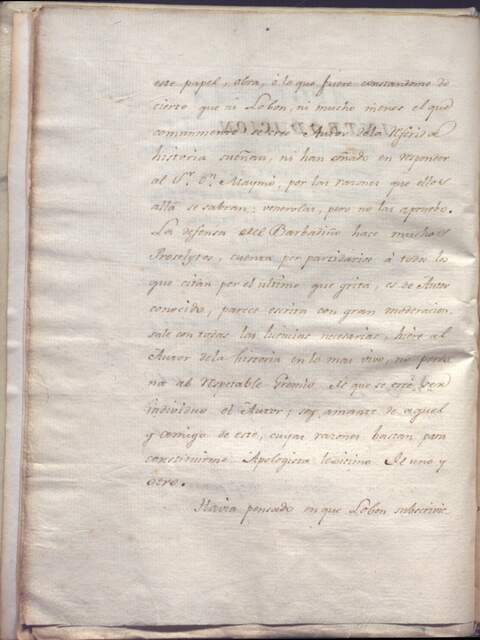 este papel, obra, ò lo que fuere constandome de
cierto que ni Lobon, ni mucho menos el que
comunmente se cree Autor de la referida
historia sueñan, ni han soñado en responder
al S.r D.n Maymó, por las razones que ellos
allà se sabran; venerolas, pero no las apruebo.
La defensa del Barbadiño hace muchos
Proselytos, cuenta por partidarios à todos los
que citan por el ultimo que grita, es de Autor
conocido, parece escrita con gran moderacion,
sale con todas las licencias necesarias, hiere al
Autor de la historia en lo mas vivo, no perdo
na al respetable Gremio de que se cree ser
individuo el Autor; soy amante de aquel
y amigo de este, cuyas razones bastan para
constituirme Apologista legitimo de uno y
otro.
Havia pensado en que Lobon subscrivie